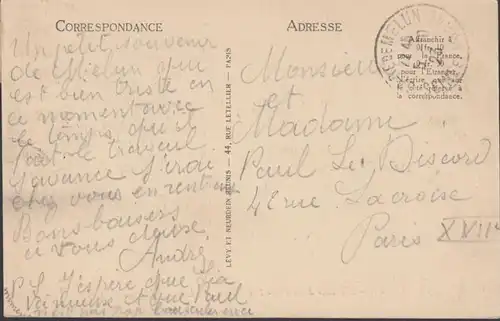 CORRESPONDANCE
ADRESSE
Un petit souvenir
de Melun qui
est bien triste en
ce moment avec
le temps qu'il
fait le travail
s'avance J'irai
chez vous en rentrant
Bons baisers
à vous deux
André
P.S J'espère que
Veinuse et que Paul
n'est pas
LÉVY ET NEURDEIN RÉUNIS - 44, RUE LETELLIER - PARIS
Monsieur
et
Madame
Paul Le Discord
42 rue Lacroix
Paris XVII
MELUN
Affranchir à
0fr.10
pour la France,
pour l'Étranger
à
la correspondance.